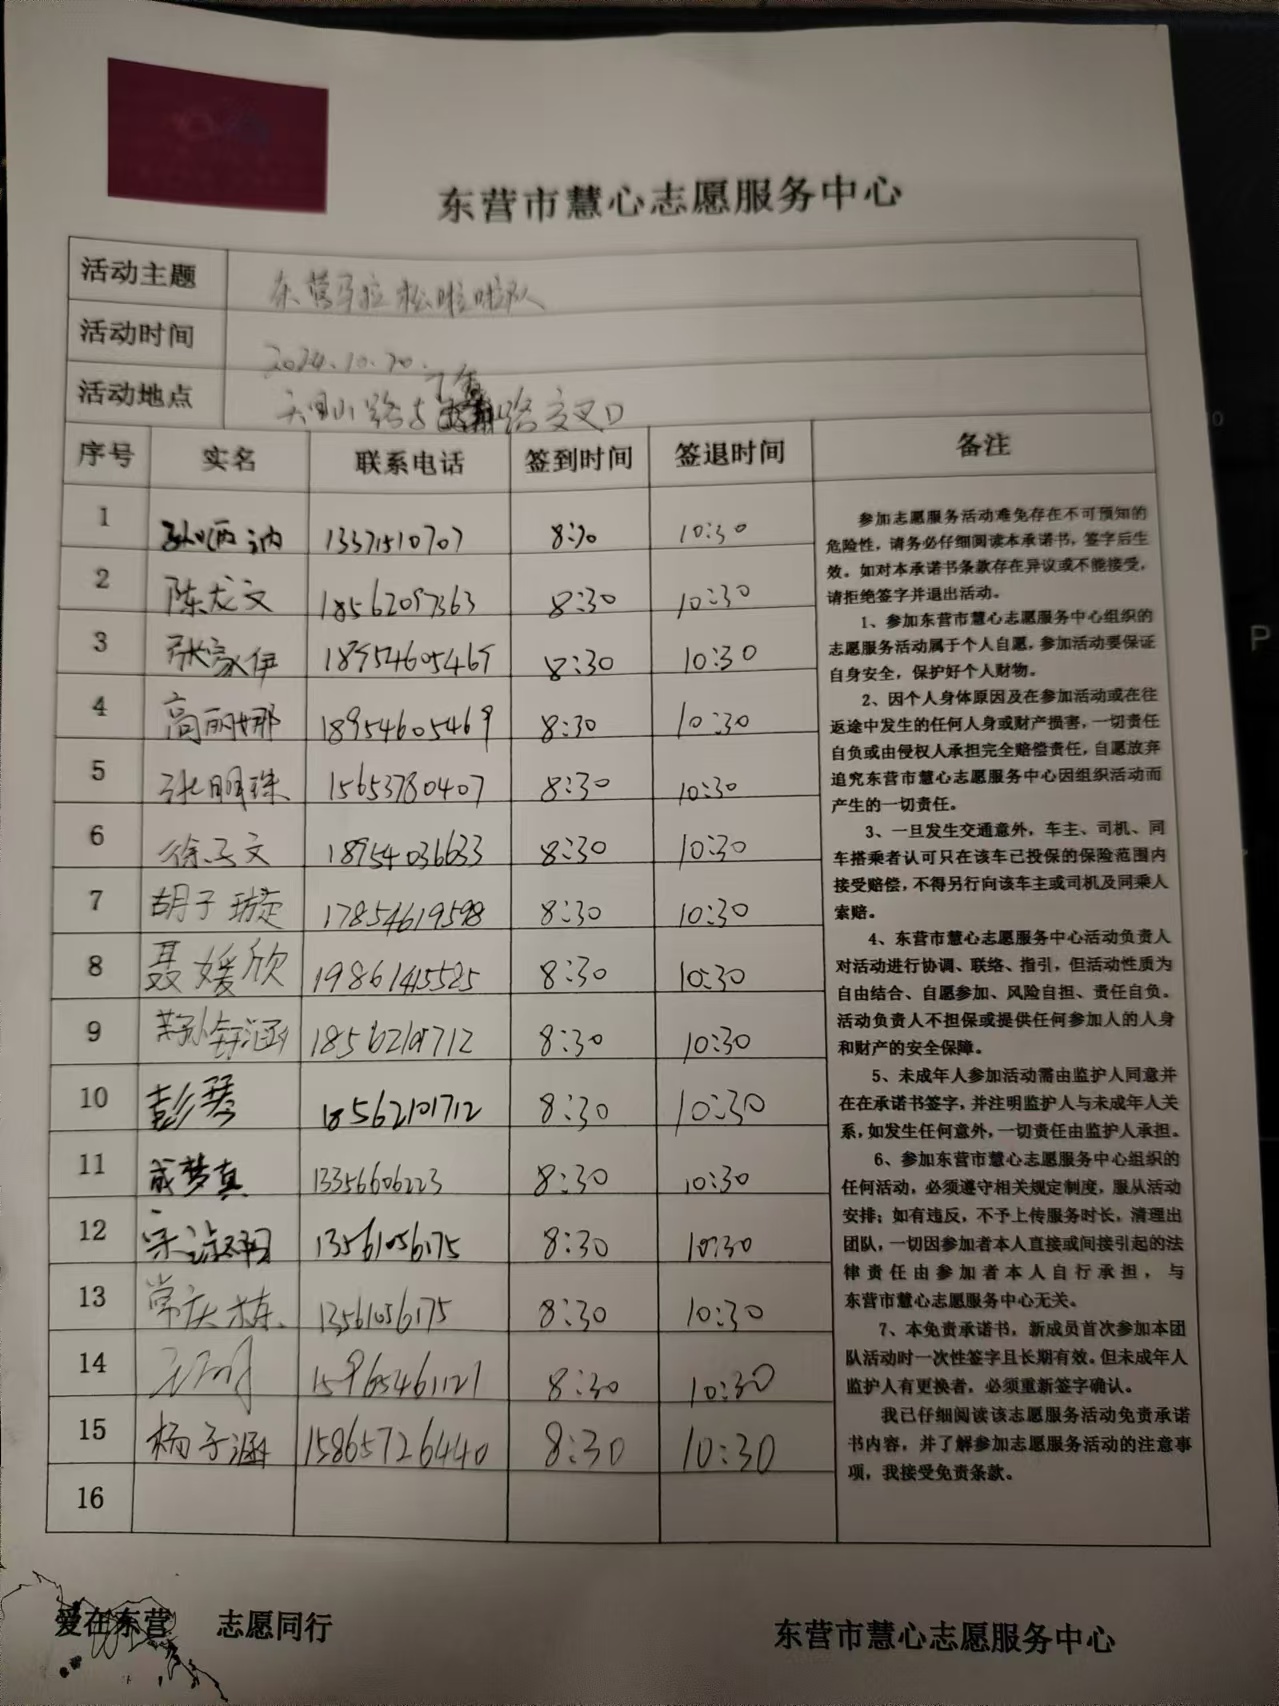 东营市慧心志愿服务中心
活动主题 东营马拉松啦啦队
活动时间 2024.10.20.
活动地点 路与 路交叉口
序号 实名 联系电话 签到时间 签退时间 备注
1 8:30 10:30
2 陈龙文 18562097363 8:30 10:30
3 张家伊 18954605469 8:30 10:30
4 高丽娜 18954605469 8:30 10:30
5 张明珠 15653780407 8:30 10:30
6 徐子文 18754036633 8:30 10:30
7 胡子璇 17854619598 8:30 10:30
8 聂媛欣 19861415525 8:30 10:30
9 8:30 10:30
10 彭琴 18562101712 8:30 10:30
11 成梦真 13356606223 8:30 10:30
12 宋 13561056175 8:30 10:30
13 常庆栋 13561056175 8:30 10:30
14 15965461121 8:30 10:30
15 杨子涵 15865726440 8:30 10:30
16
参加志愿服务活动难免存在不可预知的
危险性，请务必仔细阅读本承诺书，签字后生
效。如对本承诺书条款存在异议或不能接受，
请拒绝签字并退出活动。
1、参加东营市慧心志愿服务中心组织的
志愿服务活动属于个人自愿，参加活动要保证
自身安全，保护好个人财物。
2、因个人身体原因及在参加活动或在往
返途中发生的任何人身或财产损害，一切责任
自负或由侵权人承担完全赔偿责任，自愿放弃
追究东营市慧心志愿服务中心因组织活动而
产生的一切责任。
3、一旦发生交通意外，车主、司机、同
车搭乘者认可只在该车已投保的保险范围内
接受赔偿，不得另行向该车主或司机及同乘人
索赔。
4、东营市慧心志愿服务中心活动负责人
对活动进行协调、联络、指引，但活动性质为
自由结合、自愿参加、风险自担、责任自负。
活动负责人不担保或提供任何参加人的人身
和财产的安全保障。
5、未成年人参加活动需由监护人同意并
在在承诺书签字，并注明监护人与未成年人关
系，如发生任何意外，一切责任由监护人承担。
6、参加东营市慧心志愿服务中心组织的
任何活动，必须遵守相关规定制度，服从活动
安排；如有违反，不予上传服务时长，清理出
团队，一切因参加者本人直接或间接引起的法
律责任由参加者本人自行承担，与
东营市慧心志愿服务中心无关。
7、本免责承诺书，新成员首次参加本团
队活动时一次性签字且长期有效。但未成年人
监护人有更换者，必须重新签字确认。
我已仔细阅读该志愿服务活动免责承诺
书内容，并了解参加志愿服务活动的注意事
项，我接受免责条款。
爱在东营 志愿同行
东营市慧心志愿服务中心
P